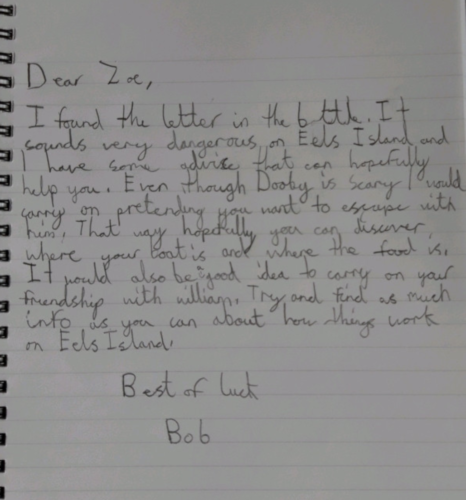 Dear Zoe,
I found the letter in the bttle. It
sounds very dangerous on Eels Island and
I have some advise that can hopefully
help you. Even though Dooby is scary I would
carry on pretending you want to escape with
him. That way hopefully you can discover
where your boat is and where the food is.
It would also be good idea to carry on your
friendship with william. Try and find as much
info as you can about how things work
on Eels Island.
Best of luck
Bob